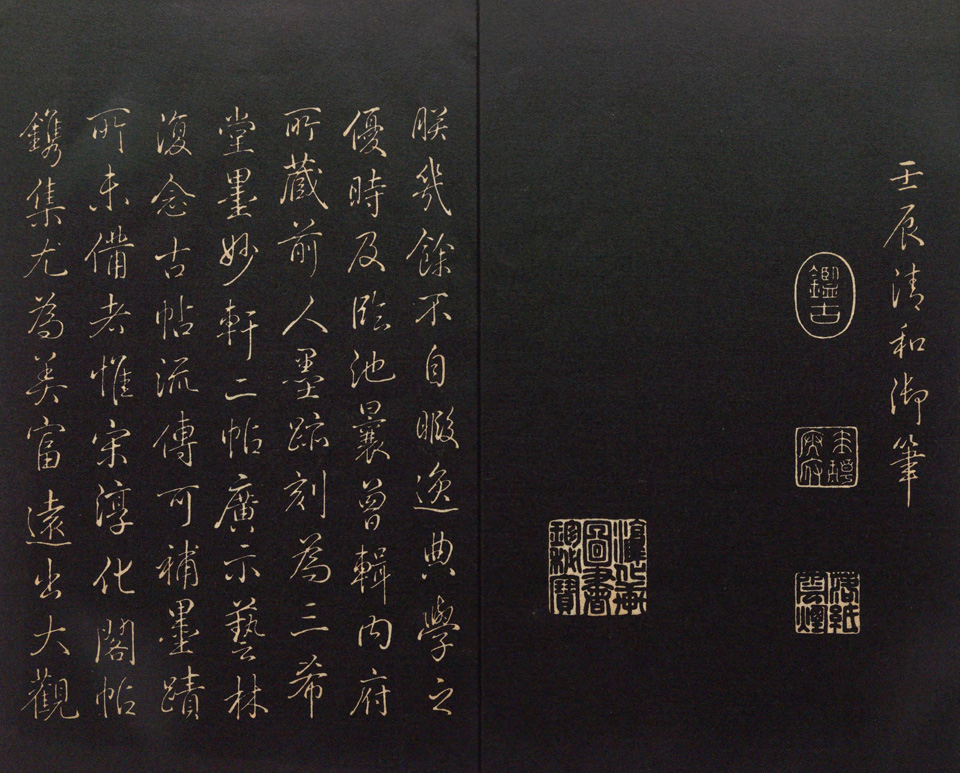 壬辰清和御筆
鑑古
落紙雲煙
淳化軒圖書珍秘寶
朕幾餘不自暇逸典學之
優時及臨池曩曾輯內府
所蔵前人墨跡刻為三希
堂墨妙軒二帖廣示藝林
復念古帖流傳可補墨蹟
所未備者惟宋淳化閣帖
鐫集尤為美富遠出大觀